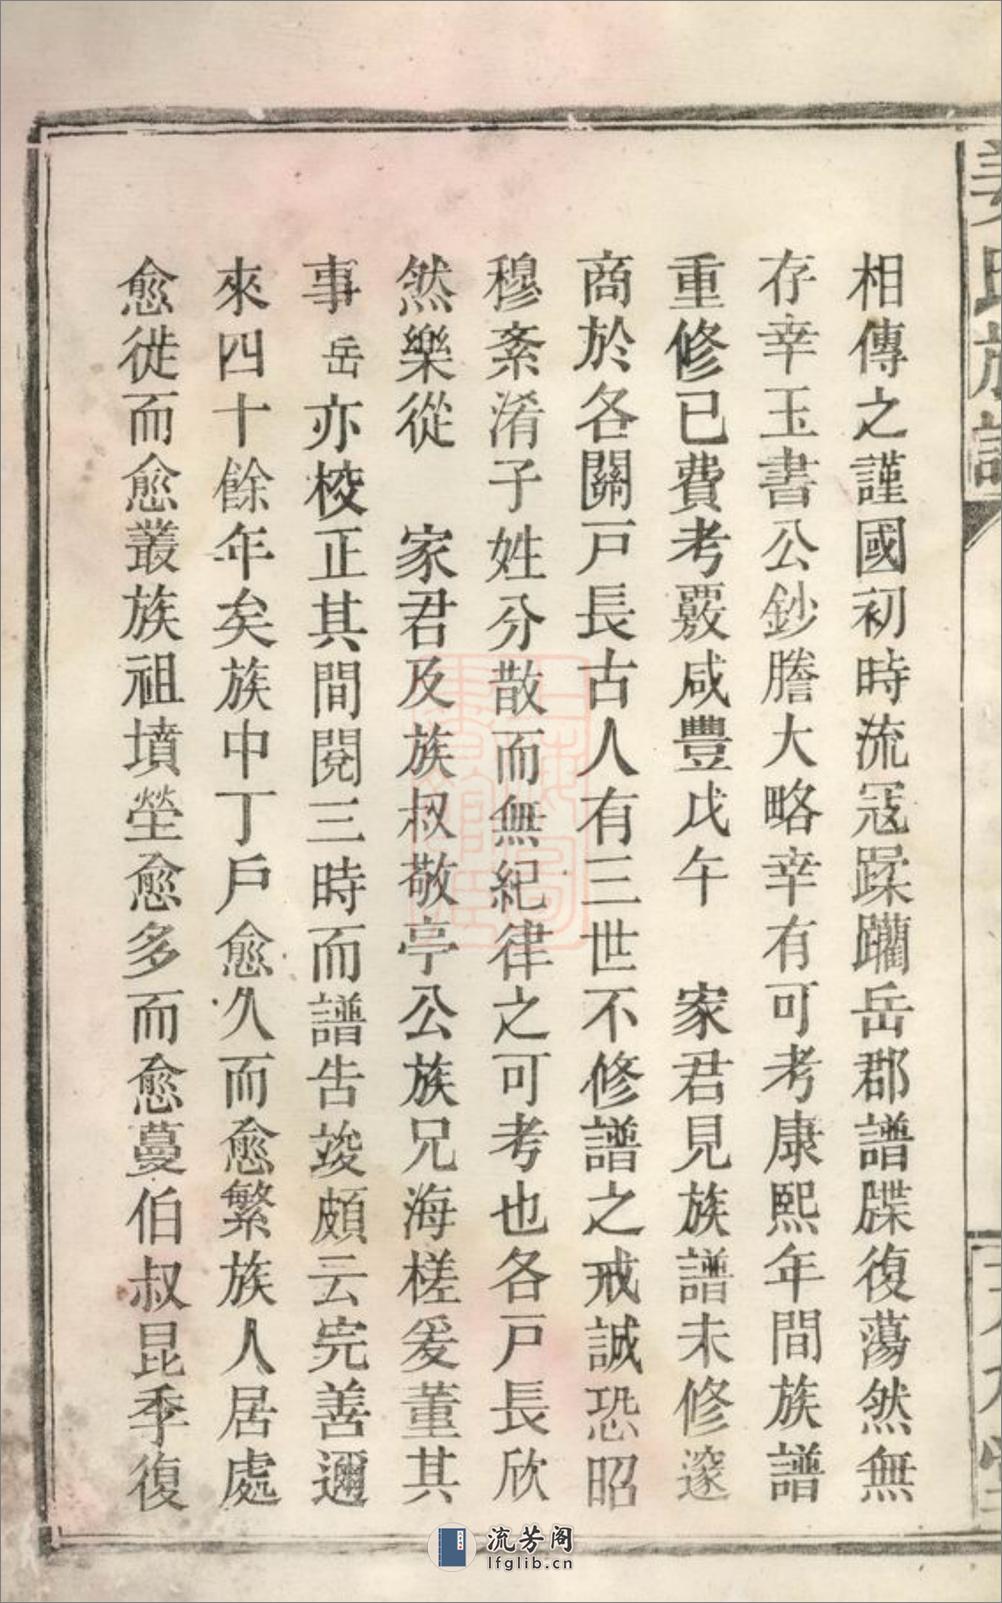 氏族譜
相傳之謹國初時流冦蹂躪岳郡譜牒復蕩然無
存幸玉書公鈔謄大略幸有可考康熙年間族譜
重修已費考覈咸豐戊午　家君見族譜未修邃
商於各關戸長古人有三世不修譜之戒誠恐昭
穆紊淆子姓分散而無紀律之可考也各戸長欣
然樂從　家君及族叔敬亭公族兄海槎爰董其
事岳亦校正其間閱三時而譜告竣頗云完善邇
來四十餘年矣族中丁戸愈久而愈繁族人居處
愈徙而愈叢族祖墳塋愈多而愈蔓伯叔昆季復
流芳阁
lfglib.cn